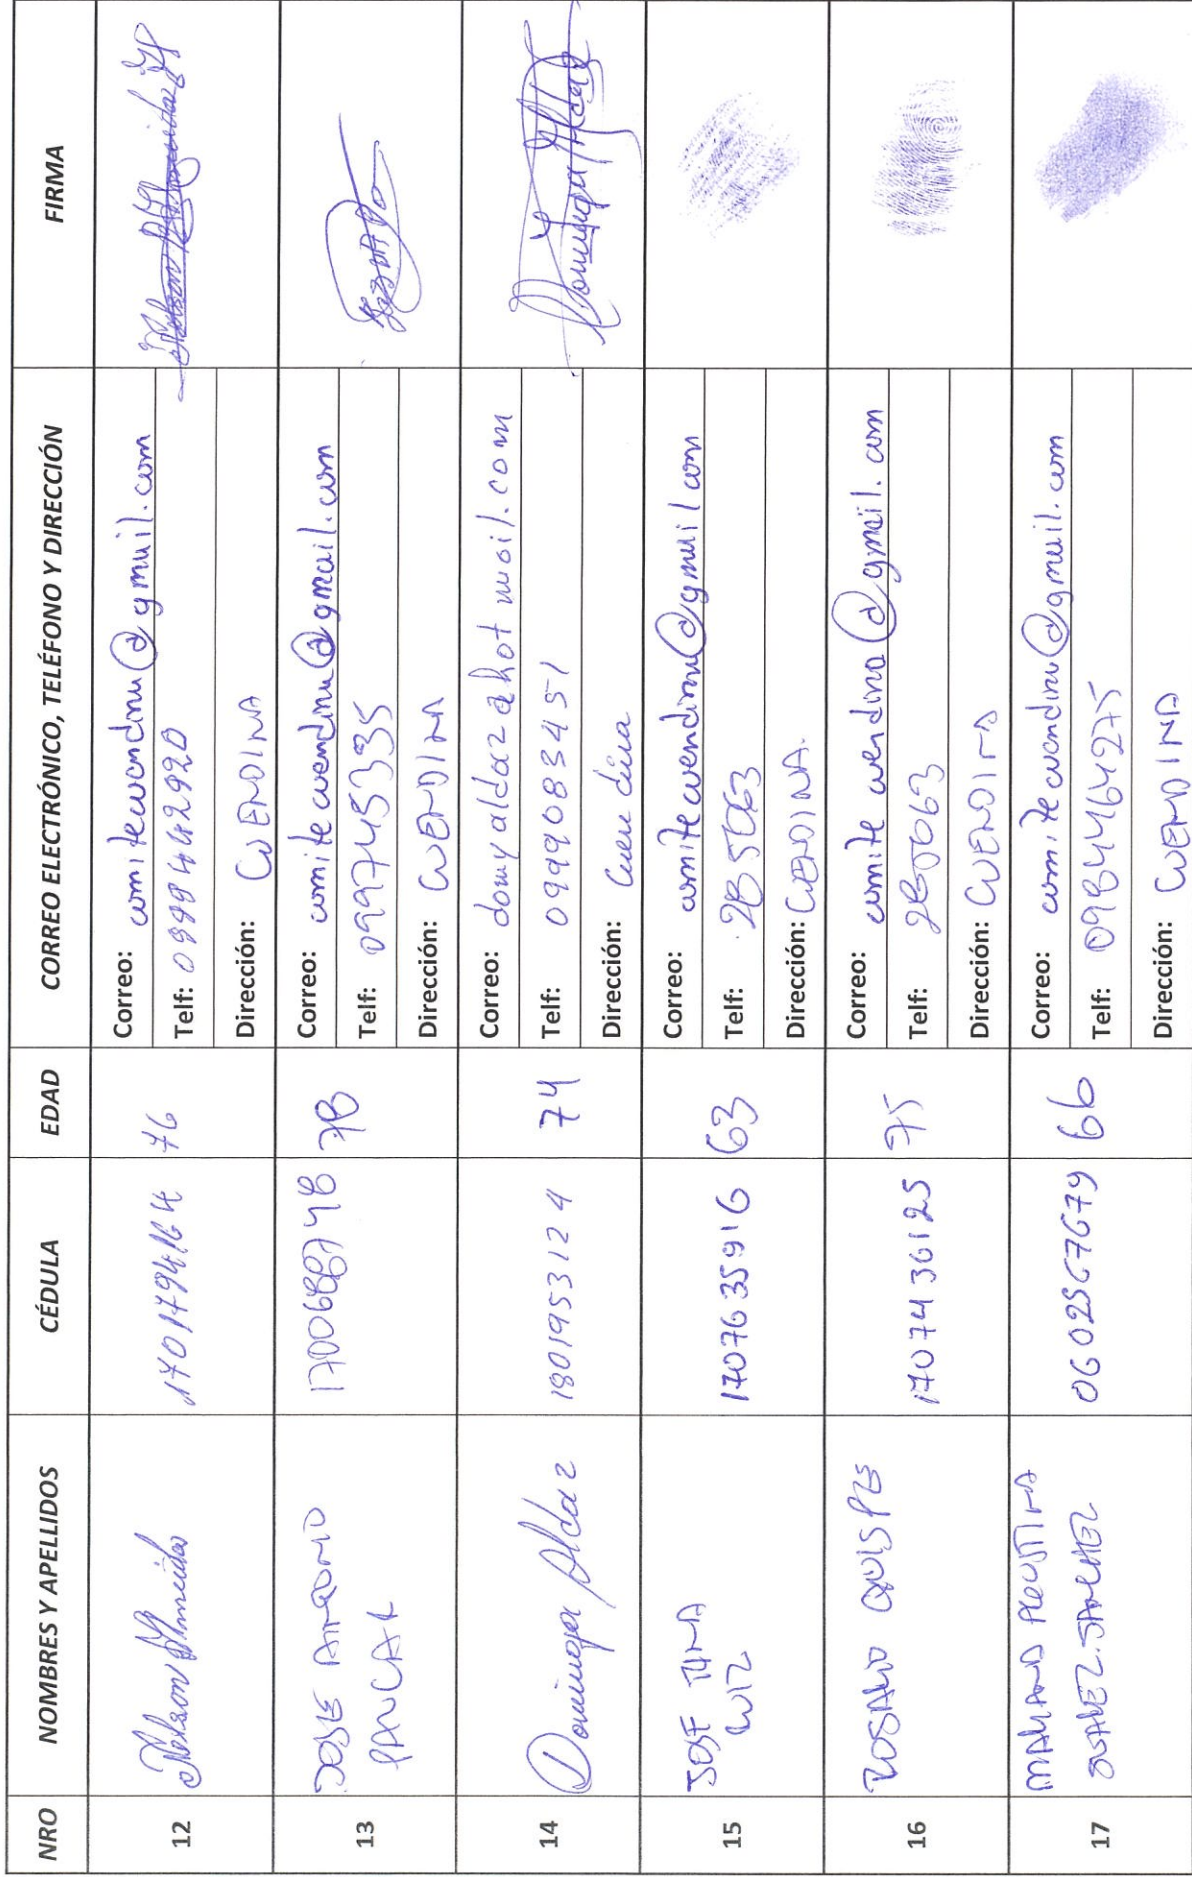 NRO NOMBRES Y APELLIDOS CÉDULA EDAD CORREO ELECTRÓNICO, TELÉFONO Y DIRECCIÓN FIRMA
12 Nelson Almeida 76
Correo: comitecuendina@gmail.com
Telf: 0999442920
Dirección: CUENDINA
13 JOSE ANTONIO
PAUCAR
78
Correo: comitecuendina@gmail.com
Telf: 0997453335
Dirección: CUENDINA
14 Dominga Aldaz 1801953124 74
Correo: domyaldaz@hotmail.com
Telf: 0999083451
Dirección: Cuendina
Dominga Aldaz
15 JOSE TUNA
LUIZ
1707635916 63
Correo: comitecuendina@gmail com
Telf: 285063
Dirección: CUENDINA.
16 ROSARIO QUISPE 1707436125 75
Correo: comite cuendina@gmail.com
Telf: 285063
Dirección: CUENDINA
17 SUAREZ SANCHEZ
0602567679 66
Correo: comitecuendina@gmail.com
Telf: 0984464275
Dirección: CUENDINA